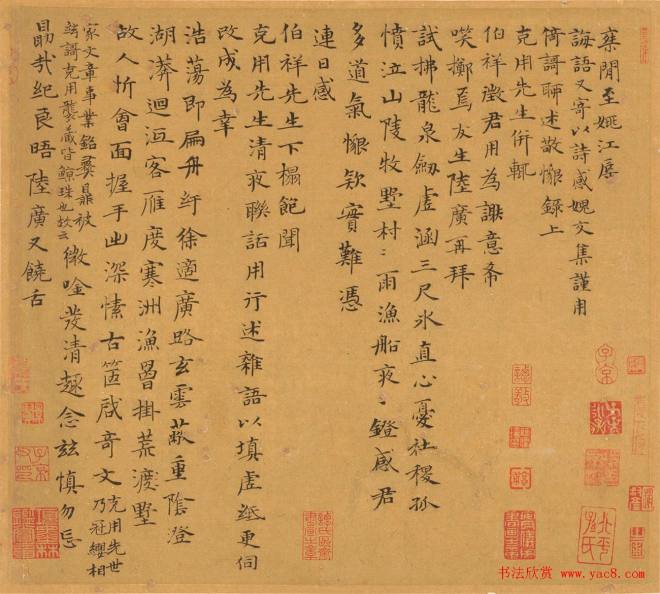 棄閒至姚江辱
誨語又寄以詩感媿交集謹用
倚謌聊述敬懷錄上
克用先生併輒
伯祥徵君用為謝意希
咲擲焉友生陸廣再拜
試拂龍泉劒虛涵三尺冰直心憂社稷孤
憤泣山陵牧墅村〻雨漁船夜〻鐙感君
多道氣懷欵實難憑
連日感
伯祥先生下榻飽聞
克用先生清夜聯話用行述雜語以填虛紙更伺
改成為幸
浩蕩即扁舟紆徐適廣路玄雲蔽重陰澄
湖漭迴沍客雁度寒洲漁罾掛荒渡墅
故人忻會面握手出深愫古箇啟奇文克用先世
乃冠纓相
家文章事業銘彝鼎被
絃謌克用襲藏皆鯨珠也故云微唫發清趣念玆慎勿忘
勗哉紀良晤陸廣又饒舌
书法欣赏 www.yac8.com